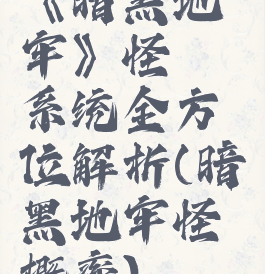 《暗黑地
牢》怪
系统全方
位解析(暗
黑地牢怪
概率)